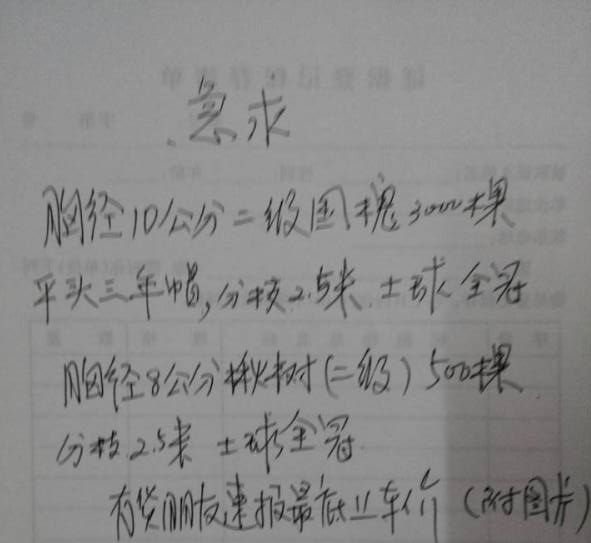 急求
胸径10公分二级国槐3000棵
平头三年帽,分枝2.5米.土球全冠
胸径8公分楸树(二级)500棵
分枝2.5米 土球全冠.
有货朋友速报最底上车价(附图片)